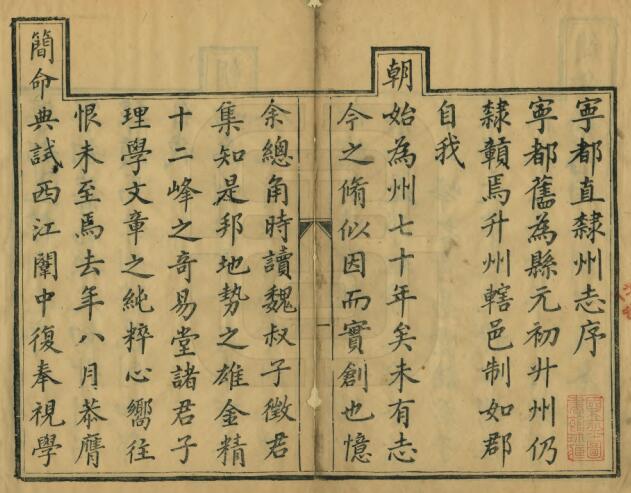 寧都直隸州志序
寧都舊為縣元初升州仍
隸贛焉升州轄邑制如郡
自我
朝始為州七十年矣未有志
今之脩似因而實創也憶
余總角時讀魏叔子徵君
集知是邦地勢之雄金精
十二峰之奇易堂諸君子
理學文章之純粹心嚮往
恨未至焉去年八月恭膺
簡命典試西江闈中復奉視學
一